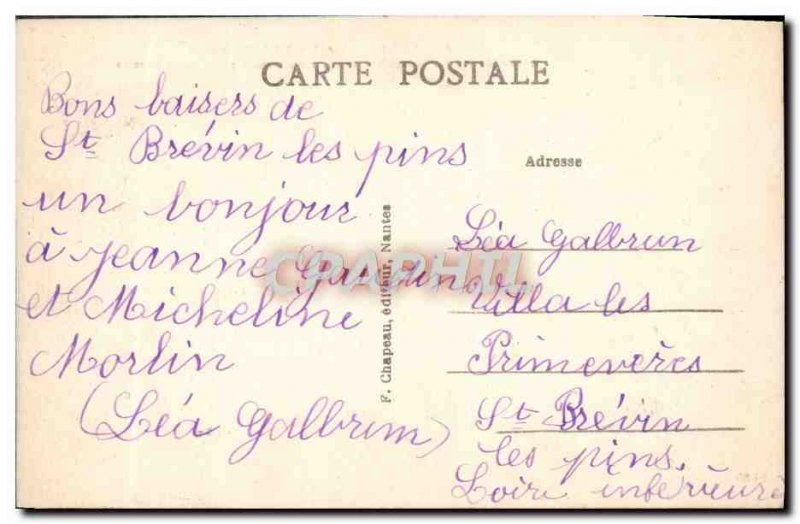 CARTE POSTALE
Bons baisers de
St Brévin les pins
un bonjour
à jeanne
et Micheline
Morlin
(Léa Galbrun)
F. Chapeau, éditeur, Nantes
CPAPHIL
Adresse
Léa Galbrun
Villa les
Primevères
St Brévin
les pins.
Loire inférieure